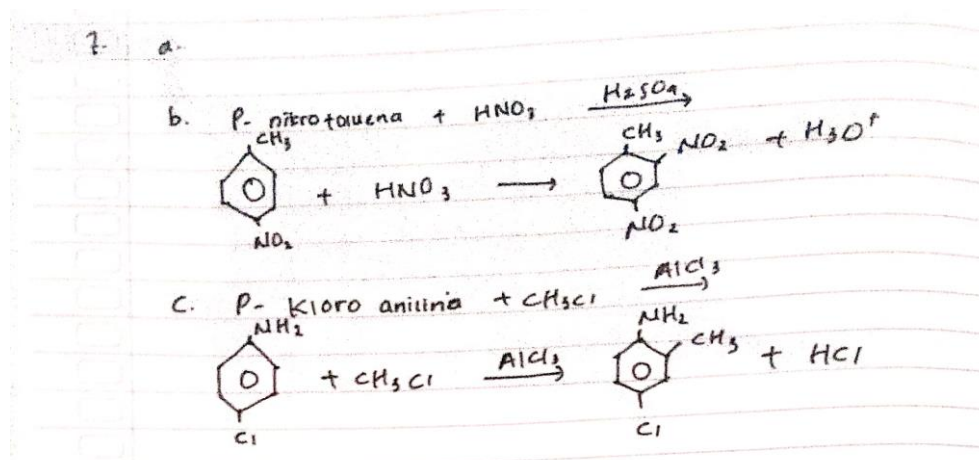 7. a.
b. P- nitrotoluena + HNO3 H2SO4
CH3 CH3 NO2 + H3O+
+ HNO3
NO2 NO2
c. P- Kloro anilina + CH3Cl AlCl3
NH2 NH2
+ CH3Cl AlCl3 CH3 + HCl
Cl Cl